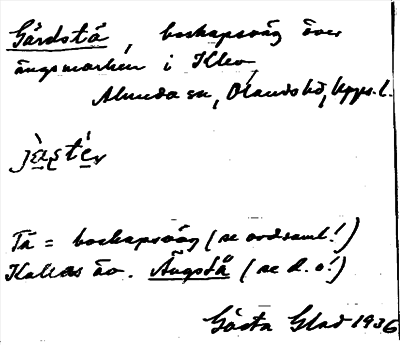 Gårdstå, boskapsväg över
ängsmarken i Klev,
Alunda sn, Olands hd, Upps. l.
Tå = boskapsväg (se ordsaml!)
Kallas äv. Ängstå (se d. o!)
Gösta Glad 1936